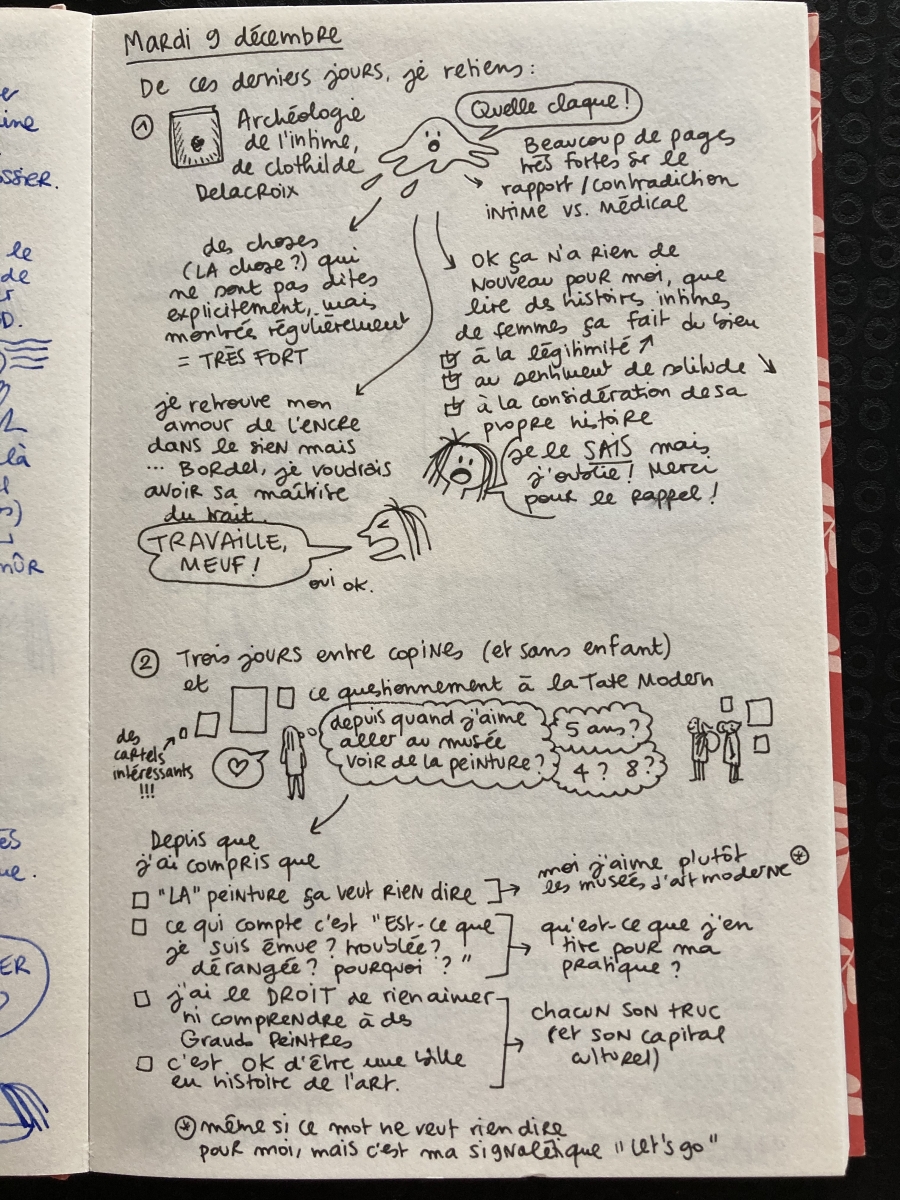 er
ine
ossier.
le
de
D.
là
s)
mûr
es
ue.
ER
?
Mardi 9 décembre
De ces derniers jours, je retiens :
① Archéologie
de l'intime,
de clothilde
Delacroix
Quelle claque !
Beaucoup de pages
très fortes sr le
rapport / contradiction
intime vs. médical
des choses
(LA chose ?) qui
ne sont pas dites
explicitement, mais
montrée régulièrement
= TRÈS FORT
OK ça n'a rien de
nouveau pour moi, que
lire des histoires intimes
de femmes ça fait du bien
à la légitimité ↗
au sentiment de solitude ↘
à la considération de sa
propre histoire
je retrouve mon
amour de l'ENCRE
dans le sien mais
... Bordel, je voudrais
avoir sa maîtrise
du trait.
je le SAIS mais
j'oublie ! Merci
pour le rappel !
TRAVAILLE,
MEUF !
oui ok.
② Trois jours entre copines (et sans enfant)
et ce questionnement à la Tate Modern
des
cartels
intéressants
!!!
depuis quand j'aime
aller au musée
voir de la peinture ?
5 ans ?
4 ? 8 ?
Depuis que
j'ai compris que
"LA" peinture ça veut rien dire
moi j'aime plutôt
les musées d'art moderne *
ce qui compte c'est "Est-ce que
je suis émue ? troublée ?
dérangée ? pourquoi ?"
qu'est-ce que j'en
tire pour ma
pratique ?
j'ai le DROIT de rien aimer
ni comprendre à des
Grands Peintres
c'est OK d'être une bille
en histoire de l'art.
chacun son truc
(et son capital
culturel)
* même si ce mot ne veut rien dire
pour moi, mais c'est ma signalétique "let's go"